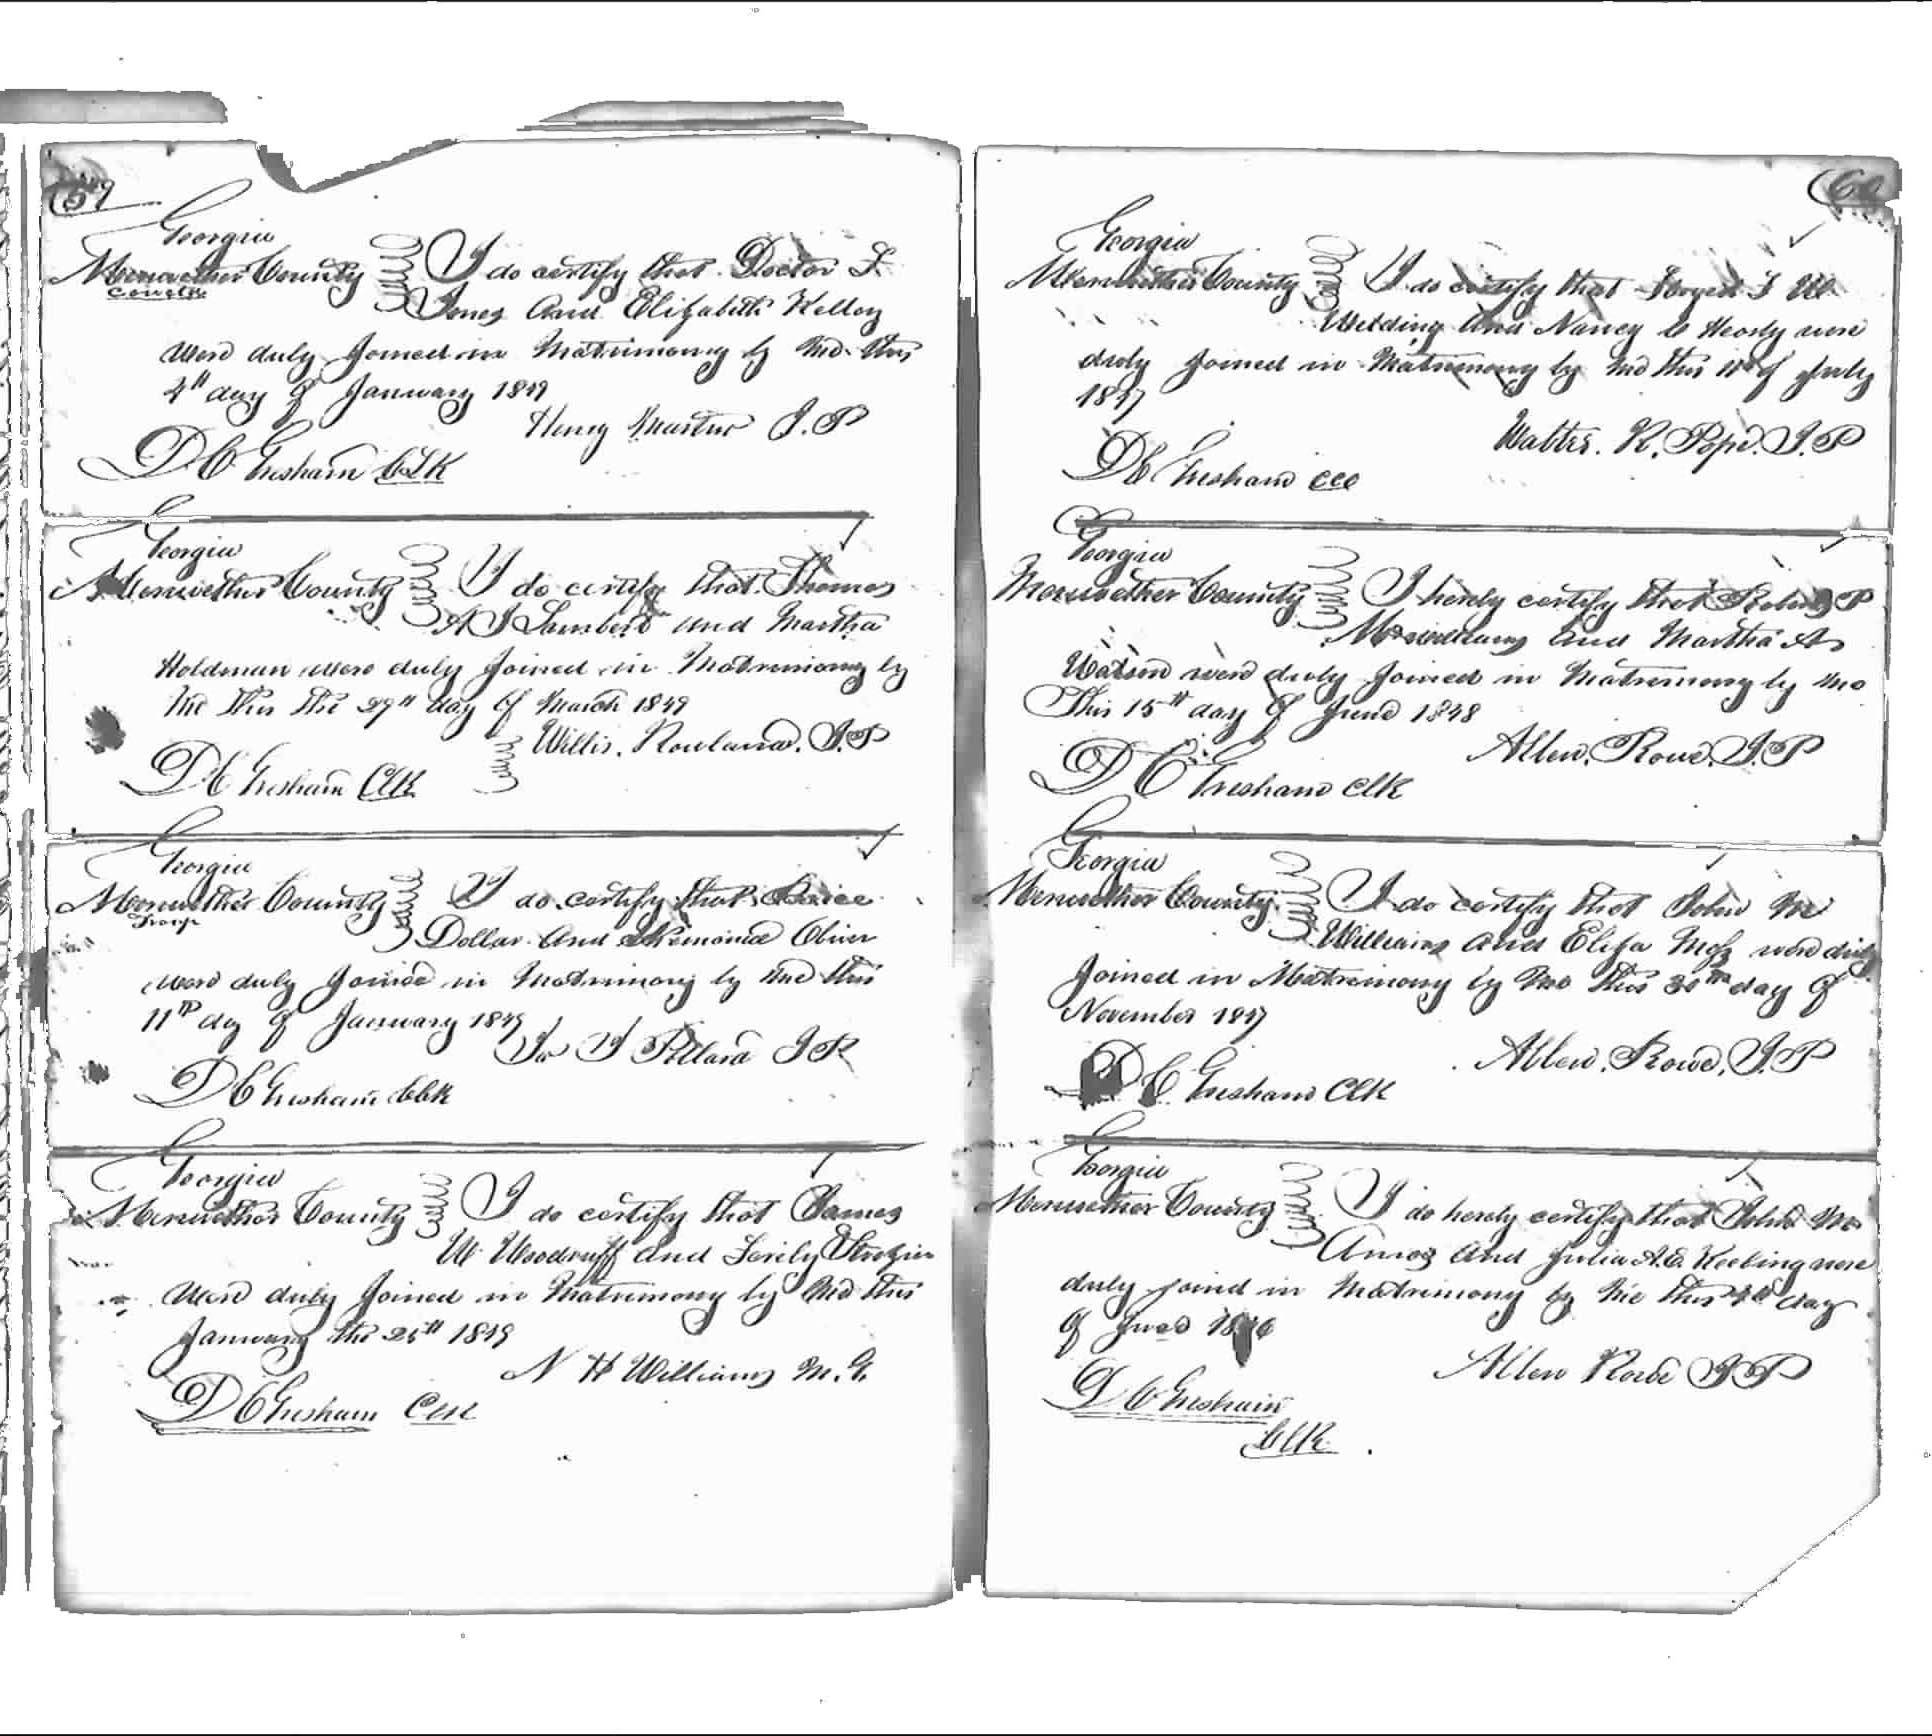 59
Georgia
Meriwether County I do certify that Doctor F
Coweta
Jones and Elizabeth Kelley
were duly Joined in Matrimony by me this
4th day of January 1849
Henry Martin J.P
D C Gresham CLK
Georgia
Meriwether County I do certify that Thomas
A J Lambert and Martha
Holdman were duly Joined in Matrimony by
me this the 29th day of March 1849
Willis. Rowland. J.P
D C Gresham Clk
Georgia
Meriwether County I do certify that
Troup
Dollar and Oliver
were duly Joined in Matrimony by me this
11th day of January 1849
Pollard J P
D C Gresham Clk
Georgia
Meriwether County I do certify that James
W Woodruff and Strozier
were duly Joined in Matrimony by me this
January the 25th 1849
N H Williams M.G.
D C Gresham Clk
60
Georgia
Meriwether County I do certify that F W
Welding and Nancy C were
duly Joined in Matrimony by me this 11th of July
1847
Walter. R. Pope. J.P
D C Gresham CCO
Georgia
Meriwether County I hereby certify that Robert P
McWilliams and Martha A
Watson were duly Joined in Matrimony by me
This 15th day of June 1848
Allen. Rowe. J.P
D C Gresham Clk
Georgia
Meriwether County I do certify that John Mc
Williams and Eliza were duly
Joined in Matrimony by me this 30th day of
November 1847
Allen. Rowe. J.P
D C Gresham Clk
Georgia
Meriwether County I do hereby certify that John M
Amos and Julia A. E. Keeling were
duly joind in Matrimony by me this 4th day
of 1846
Allen Rowe J P
D C Gresham
Clk